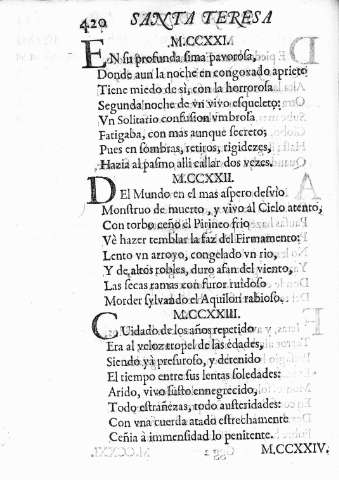 420 SANTA TERESA
M.CCXXI.
EN su profunda sima pavorosa,
Donde aun la noche en congoxado aprieto
Tiene miedo de sì, con la horrorosa
Segunda noche de vn vivo esqueleto:
Vn Solitario confusion vmbrosa
Fatigaba, con mas aunque secreto;
Pues en sombras, retiros, rigidezes,
Hazia al pasmo alli callar dos vezes.
M.CCXXII.
DEl Mundo en el mas aspero desvio
Monstruo de muerto, y vivo al Cielo atento,
Con torbo ceño el Pirineo frio
Vè hazer temblar la faz del Firmamento:
Lento vn arroyo, congelado vn rio,
Y de altos robles, duro afan del viento,
Las secas ramas con furor ruidoso
Morder sylvando el Aquilon rabioso.
M.CCXXIII.
CUidado de los años repetido
Era al veloz tropel de las edades,
Siendo yà presuroso, y detenido
El tiempo entre sus lentas soledades:
Arido, vivo susto ennegrecido,
Todo estrañezas, todo austeridades:
Con vna cuerda atado estrechamente
Ceñia à immensidad lo penitente.
M.CCXXIV.